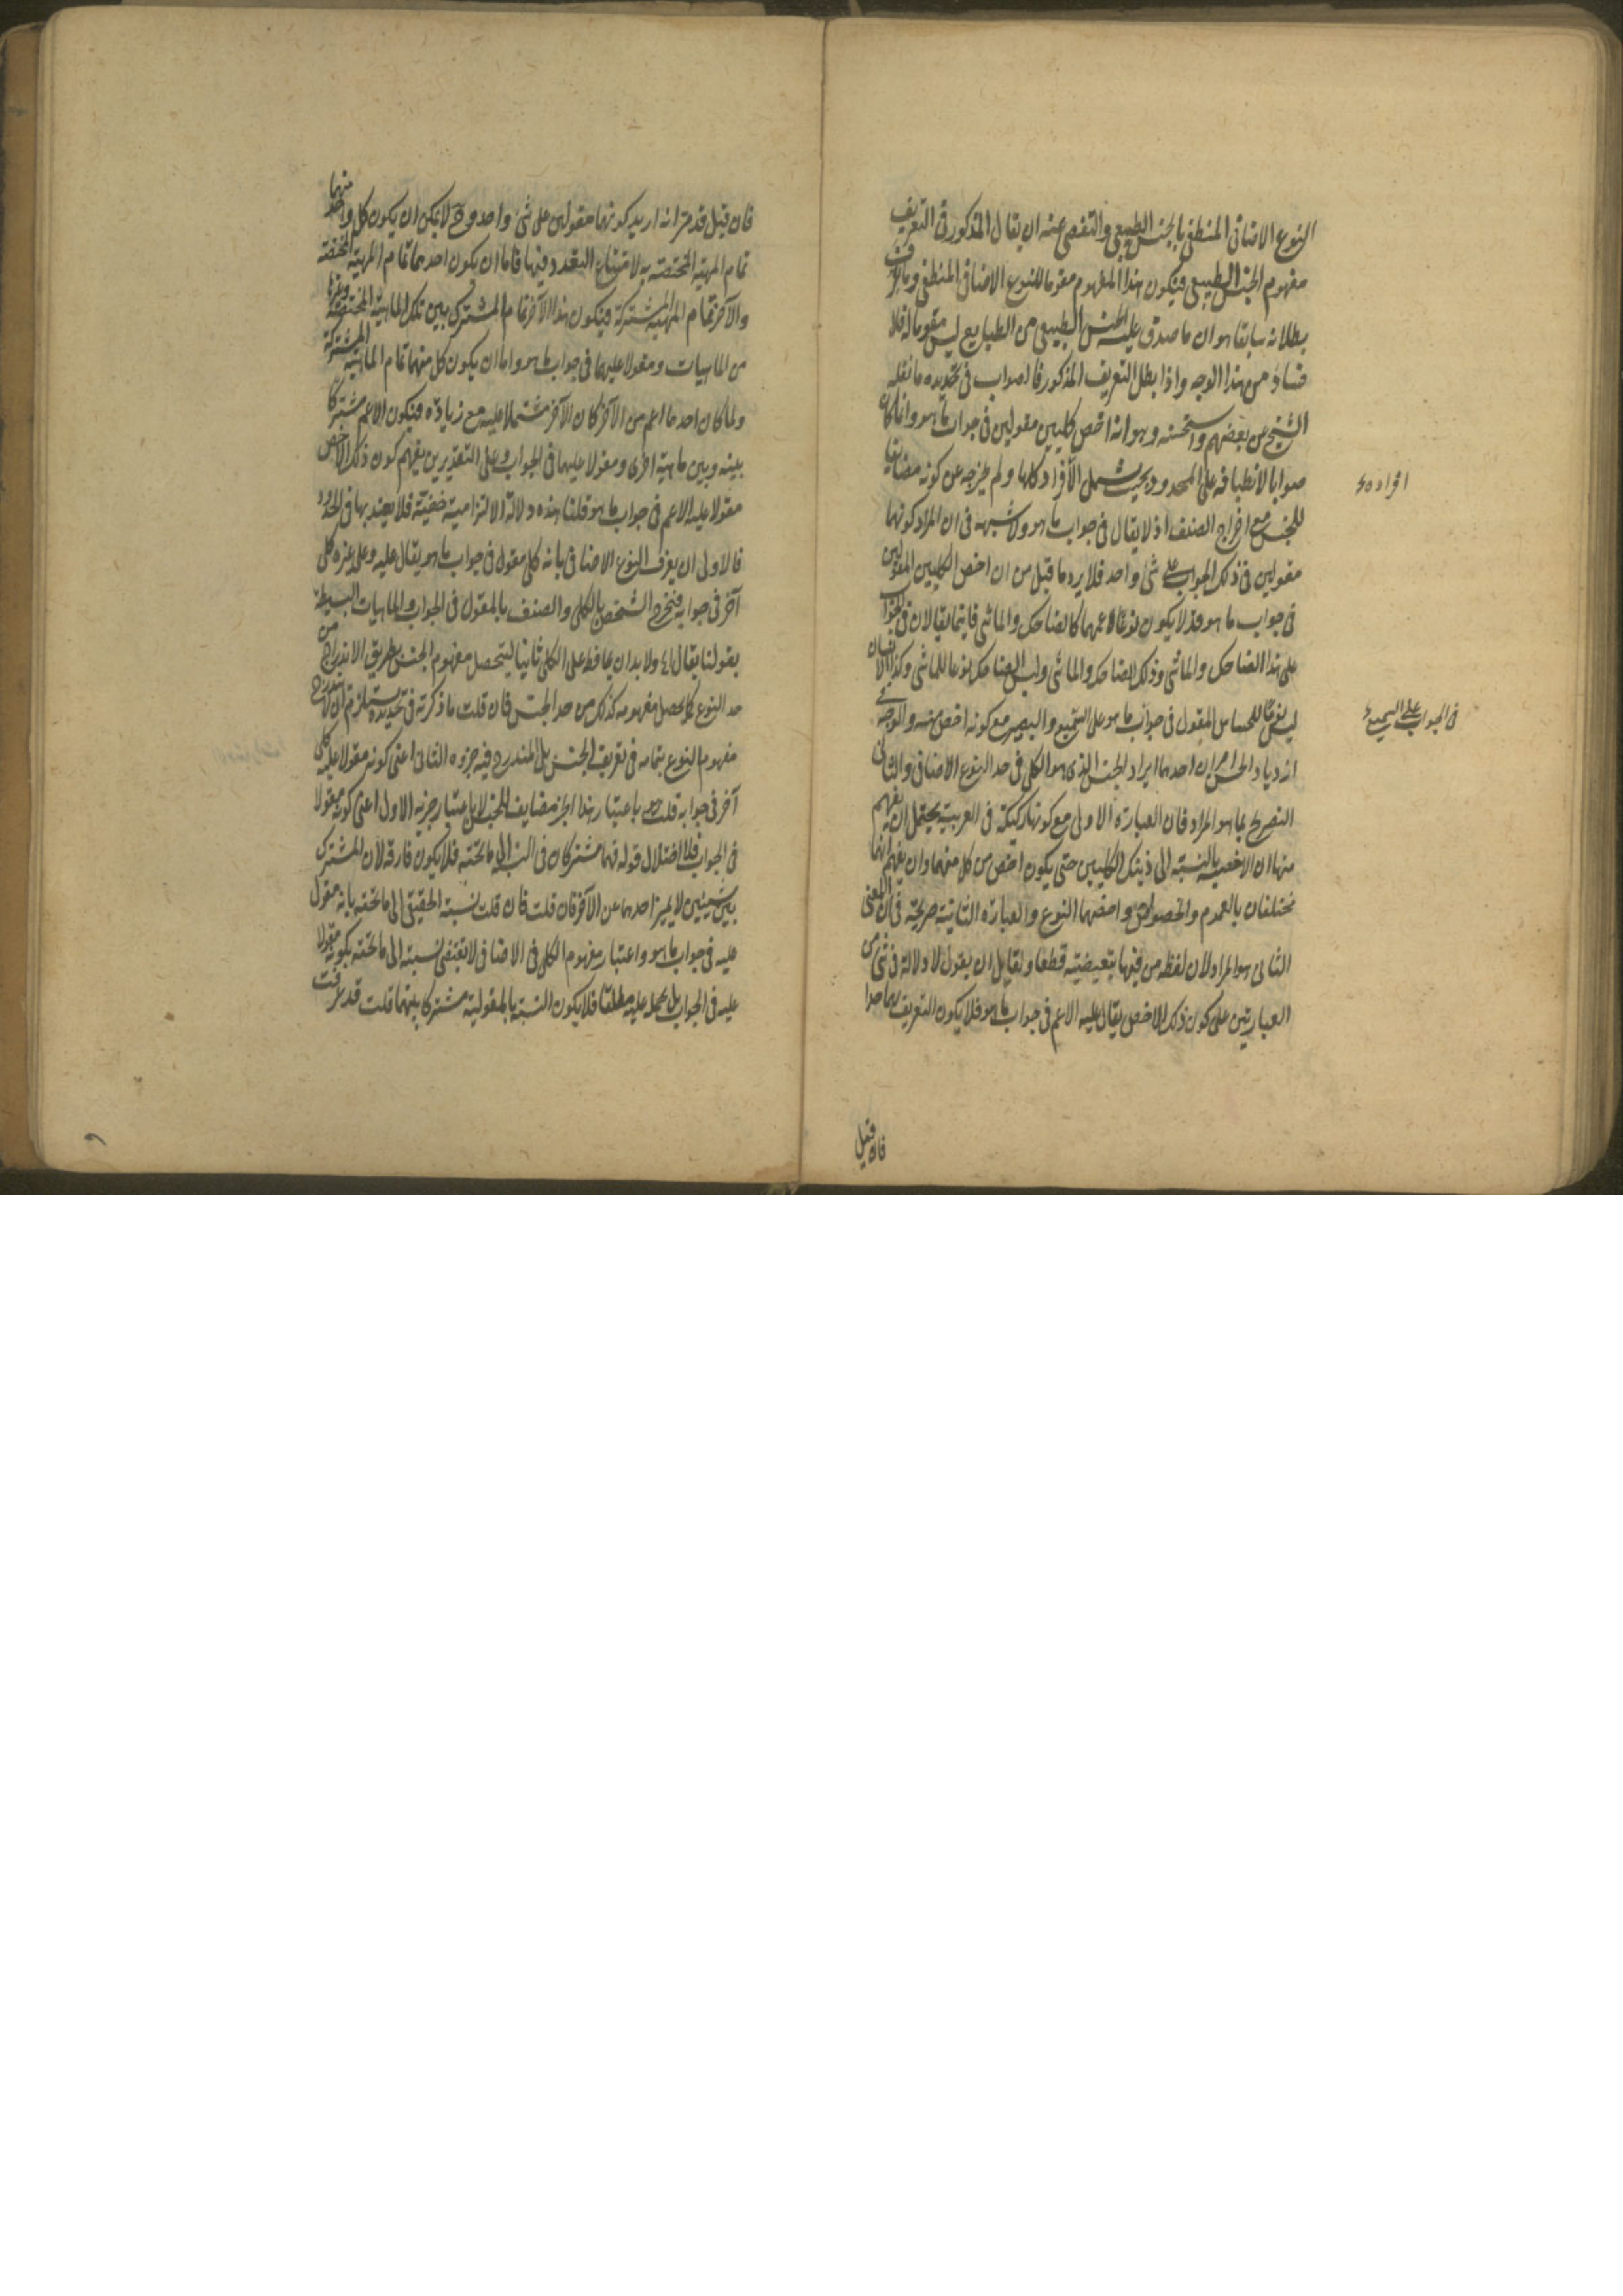 النوع الاضافى المنطقى بالجنس الطبيعى والتفصى عنه ان يقال المذكور فى التعريف
مفهوم الجنس الطبيعى فيكون هذا المفهوم مقوما للنوع الاضافى المنطقى وما عرفت
بطلانه سابقا هو ان ما صدق عليه الجنس الطبيعى من الطبايع ليس مقوما له فلا
فساد من هذا الوجه واذا بطل التعريف المذكور فالصواب فى تحديده ما نقله
الشيخ عن بعضهم واستحسنه وهو انه اخص كليين مقولين فى جواب ما هو وانما كان
صوابا لانطباقه على المحدود بحيث يشمل الافراد كلها ولم يخرجه عن كونه مضايفا
افراده
للجنس مع اخراج الصنف اذ لا يقال فى جواب ما هو ولا شبهة فى ان المراد كونهما
مقولين فى ذلك الجواب على شئ واحد فلا يرد ما قيل من ان اخص الكليين المقولين
فى جواب ما هو قد لا يكون نوعا لاعمهما كالضاحك والماشى فانهما يقالان فى الجواب
على هذا الضاحك والماشى وذلك الضاحك والماشى وليس الضاحك نوعا للماشى وكذا الانسان
ليس نوعا للحساس المقول فى جواب ما هو على السميع والبصير مع كونه اخص منه والوجه فى
فى الجواب على السميع
ازدياد الحسن امران احدهما ايراد الجنس الذى هو الكلى فى حد النوع الاضافى والثانى
التصريح بما هو المراد فان العبارة الاولى مع كونها ركيكة فى العربية يحتمل ان يفهم
منها ان الاخصية بالنسبة الى ذينك الكليين حتى يكون اخص من كل منهما وان يفهم انهما
مختلفان بالعموم والخصوص واخصهما النوع والعبارة الثانية صريحة فى ان المعنى
الثانى هو المراد لان لفظة من فيها تبعيضية قطعا ولقايل ان يقول لا دلالة فى شئ من
العبارتين على كون ذلك الاخص يقال عليه الاعم فى جواب ما هو فلا يكون التعريف بهما حدا
فان قيل
فان قيل قد مر انه اريد كونهما مقولين على شئ واحد وح لا يمكن ان يكون كل واحد منهما
تمام المهية المختصة به لامتناع التعدد فيها فاما ان يكون احدهما تمام المهية المختصة
والآخر تمام المهية المشتركة فيكون هذا الآخر تمام المشترك بين تلك الماهية المختصة وغيرها
من الماهيات ومقولا عليهما فى جواب ما هو واما ان يكون كل منهما تمام الماهية المشتركة
ولما كان احدهما اعم من الآخر كان الآخر مشتملا عليه مع زيادة فيكون الاعم مشتركا
بينه وبين ماهية اخرى ومقولا عليهما فى الجواب وعلى التقديرين يفهم كون ذلك الاخص
مقولا عليه الاعم فى جواب ما هو قلنا هذه دلالة الالتزامية خفية فلا يعتد بها فى الحدود
فالاولى ان يعرف النوع الاضافى بانه كلى مقول فى جواب ما هو يقال عليه وعلى غيره كلى
آخر فى جوابه فيخرج الشخص بالكلى والصنف بالمقول فى الجواب والماهيات البسيطة
بقولنا يقال الخ ولا بد ان يحافظ على الكلى ثانيا ليتحصل مفهوم الجنس بطريق الاندراج من
حد النوع كما يحصل مفهومه كذلك من حد الجنس فان قلت ما ذكرته فى تحديده يستلزم ان لا يندرج
مفهوم النوع بتمامه فى تعريف الجنس بل المندرج فيه جزوه الثانى اعنى كونه مقولا عليه كلى
آخر فى جوابه قلت هو باعتبار هذا الجزء مضايف للجنس لا باعتبار جزئه الاول اعنى كونه مقولا
فى الجواب فلا اختلال قوله فهما مشتركان فى النسبة الى ما تحته فلا يكون فارقة لان المشترك
بين شيئين لا يميز احدهما عن الآخر فان قلت فان قلت نسبة الحقيقى الى ما تحته بانه مقول
عليه فى جواب ما هو واعتبار مفهوم الكلى فى الاضافى لا تقتضى نسبته الى ما تحته بكونه مقولا
عليه فى الجواب بل بحمله عليه مطلقا فلا يكون النسبة بالمقولية مشتركا بينهما قلت قد عرفت